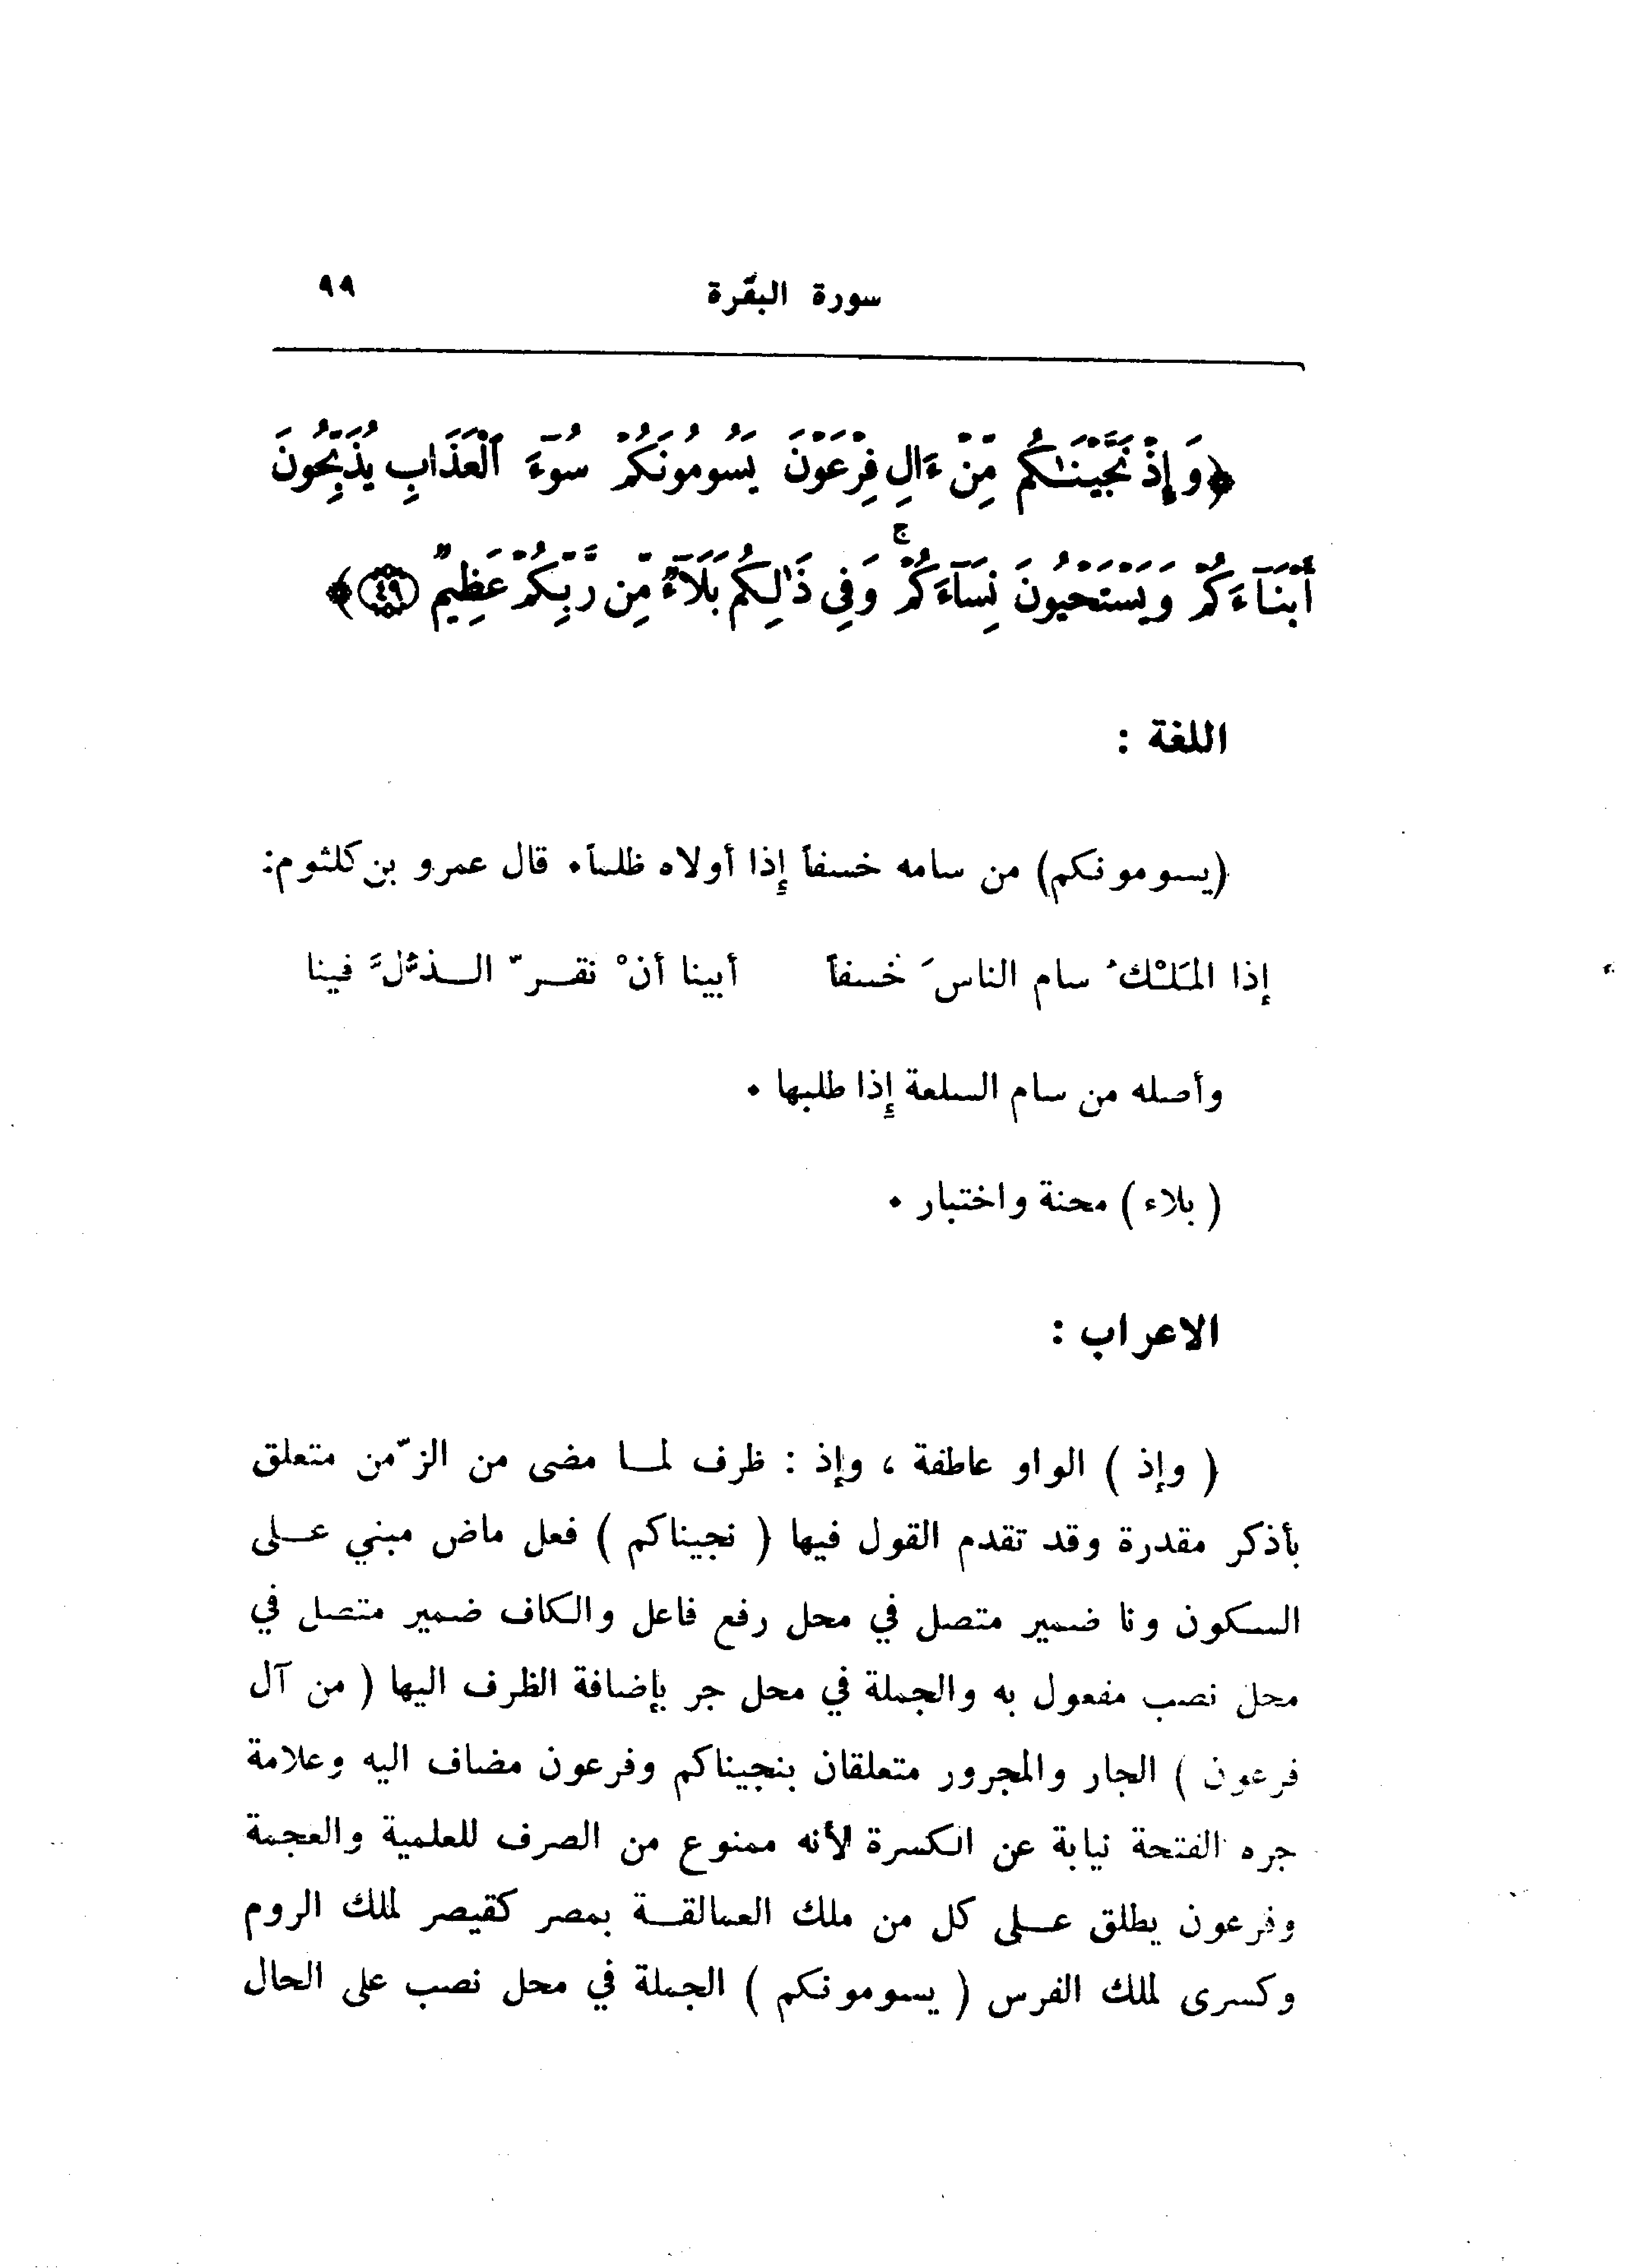 سورة البقرة ٩٩
﴿وَإِذْ نَجَّيْنَٰكُم مِّنْ ءَالِ فِرْعَوْنَ يَسُومُونَكُمْ سُوٓءَ ٱلْعَذَابِ يُذَبِّحُونَ
أَبْنَآءَكُمْ وَيَسْتَحْيُونَ نِسَآءَكُمْ ۚ وَفِى ذَٰلِكُم بَلَآءٌ مِّن رَّبِّكُمْ عَظِيمٌ ٤٩﴾
اللغة :
(يسومونكم) من سامه خسفاً إذا أولاه ظلماً. قال عمرو بن كلثوم:
إذا المَلْكُ سام الناسَ خَسفاً أبينا أنْ نقرّ الذُّلَّ فينا
وأصله من سام السلعة إذا طلبها .
( بلاء ) محنة واختبار .
الاعراب :
( وإذ ) الواو عاطفة ، وإذ : ظرف لما مضى من الزّمن متعلق
بأذكر مقدرة وقد تقدم القول فيها ( نجيناكم ) فعل ماض مبني على
السكون ونا ضمير متصل في محل رفع فاعل والكاف ضمير متصل في
محل نصب مفعول به والجملة في محل جر بإضافة الظرف اليها ( من آل
فرعون ) الجار والمجرور متعلقان بنجيناكم وفرعون مضاف اليه وعلامة
جره الفتحة نيابة عن الكسرة لأنه ممنوع من الصرف للعلمية والعجمة
وفرعون يطلق على كل من ملك العمالقة بمصر كقيصر لملك الروم
وكسرى لملك الفرس ( يسومونكم ) الجملة في محل نصب على الحال